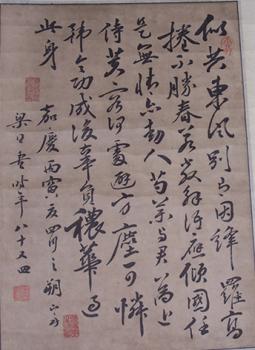 似共東風別有因絳羅高
捲不勝春若教解語應傾國任
是無情亦動人芍藥與君為近
侍芙蓉何處避芳塵可憐
韓令功成後辜負穠華過
此身
嘉慶丙寅夏四月之朔山舟
梁同書時年八十又四